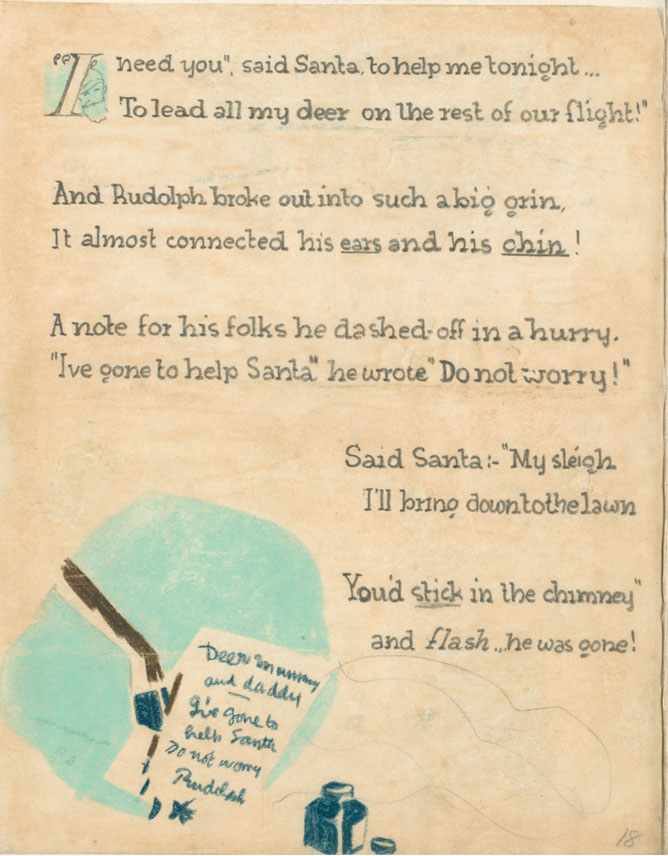 "I need you", said Santa, to help me tonight...
To lead all my deer on the rest of our flight!"
And Rudolph broke out into such a big grin,
It almost connected his ears and his chin!
A note for his folks he dashed-off in a hurry.
"Ive gone to help Santa" he wrote "Do not worry!"
Said Santa:- "My sleigh
I'll bring down to the lawn
You'd stick in the chimney"
and flash... he was gone!
Deer mummy
and daddy
I've gone to
help Santa
Do not worry
Rudolph
18